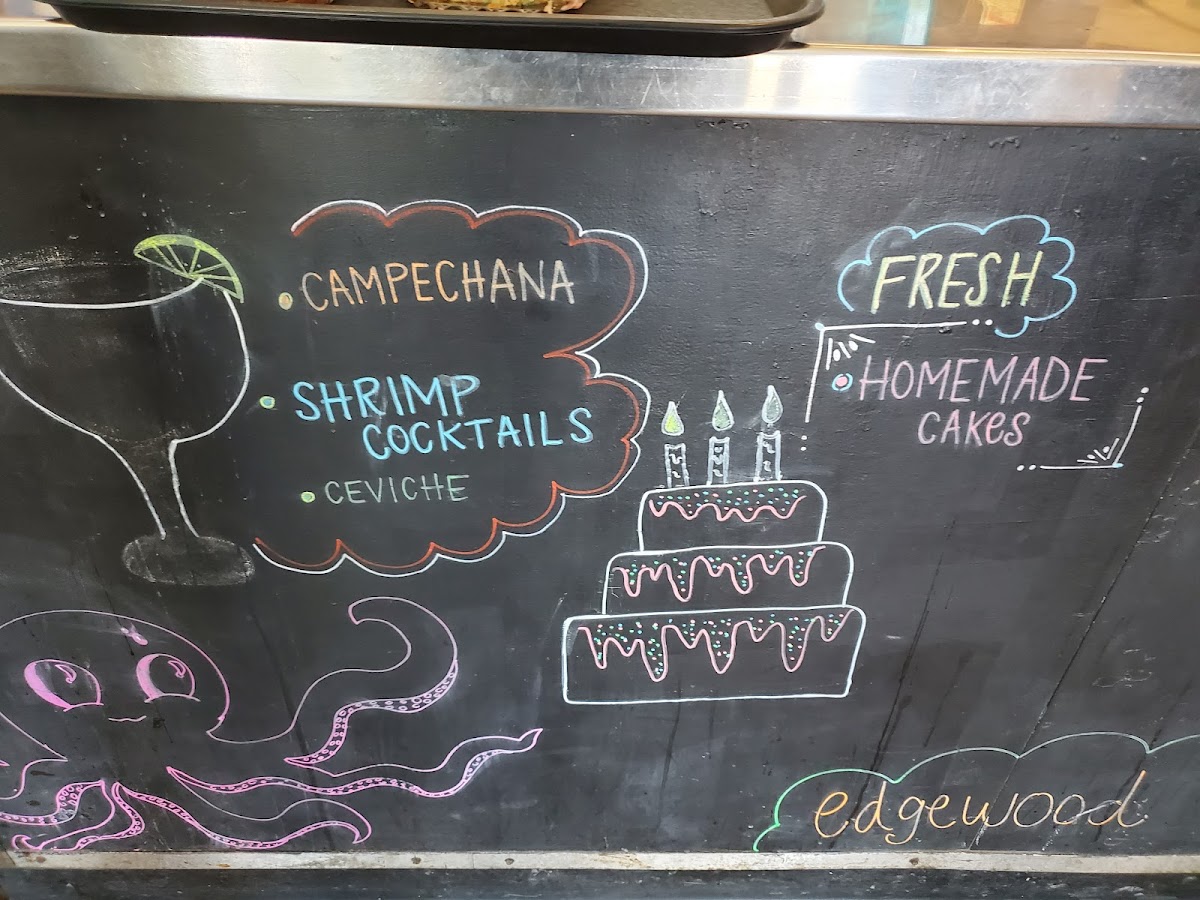 CAMPECHANA
SHRIMP
COCKTAILS
CEVICHE
FRESH
HOMEMADE
CAKES
edgewood